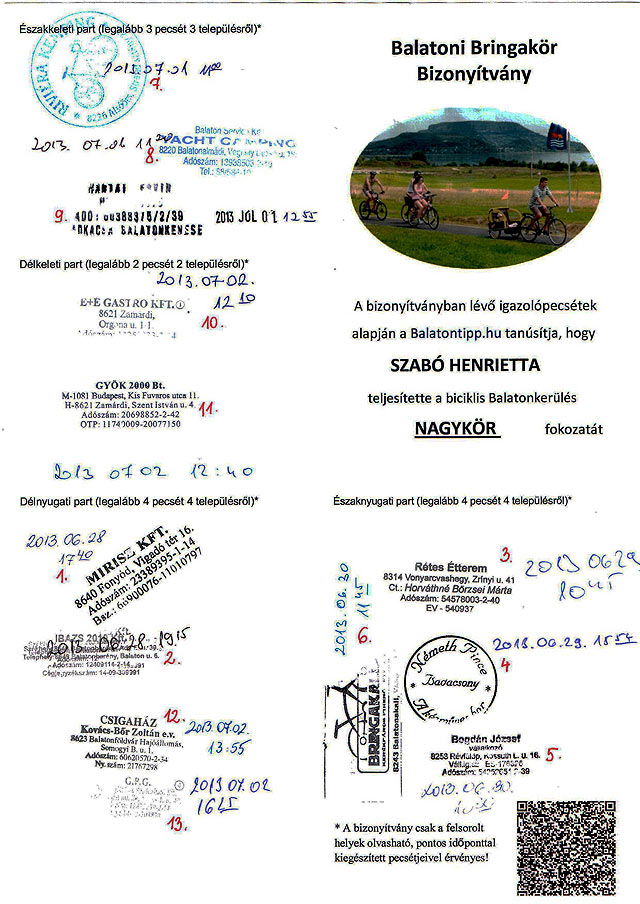 Északkeleti part (legalább 3 pecsét 3 településről)*
RIVIÉRA KEMPING
8226 Alsóörs,
2013.07.01 11:00
7.
2013. 07. 01 11
Balaton Service Kf
YACHT CAMPING
8220 Balatonalmádi,
Adószám: 13938503-2-19
Tel.:
8.
9.
2013 JÚL 01 12 55
BALATONKENESE
Délkeleti part (legalább 2 pecsét 2 településről)*
2013.07.02.
12 10
E+E GASTRO KFT.①
8621 Zamárdi,
Orgona u. 1-1.
10.
GYÖK 2000 Bt.
M-1081 Budapest, Kis Fuvaros utca 11.
H-8621 Zamárdi, Szent István u. 4.
Adószám: 20698852-2-42
OTP: 11740009-20077150
11.
2013 07 02 12:40
Délnyugati part (legalább 4 pecsét 4 településről)*
2013.06.28
17 40
1.
MIRISZ KFT.
8640 Fonyód, Vigadó tér 16.
Adószám: 23389395-1-14
Bsz.:
2013 06 28 19,15
2.
CSIGAHÁZ
12.
Kovács-Bőr Zoltán e.v.
8623 Balatonföldvár Hajóállomás,
Somogyi B. u. 1.
Adószám: 60620570-2-34
Ny.szám: 21767298
2013.07.02.
13:55
G.P.G.
2013 07 02
16 25
13.
Balatoni Bringakör
Bizonyítvány
A bizonyítványban lévő igazolópecsétek
alapján a Balatontipp.hu tanúsítja, hogy
SZABÓ HENRIETTA
teljesítette a biciklis Balatonkerülés
NAGYKÖR fokozatát
Északnyugati part (legalább 4 pecsét 4 településről)*
3.
Rétes Étterem
8314 Vonyarcvashegy, Zrínyi u. 41
Ct.: Horváthné Börzsei Márta
Adószám: 54578003-2-40
EV - 540937
2013 06 29
10 45
2013.06.30
11 45
6.
Németh Pince
Badacsony
2013.06.29. 15 54
4.
BRINGAKALI
8243 Balatonakali,
Bogdán József
vállalkozó
8253 Révfülöp, Kossuth L. u. 16.
5.
2013.06.30.
* A bizonyítvány csak a felsorolt
helyek olvasható, pontos időponttal
kiegészített pecsétjeivel érvényes!